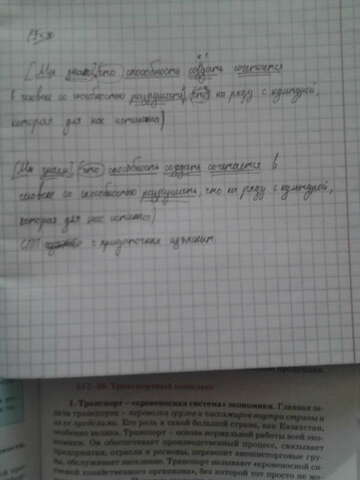 [Мы знаем], (что) способность создать сочетается
в человеке со способностью разрушать, (что) на ряду с культурой,
которая для нас
[Мы знаем], (что) способность создать сочетается в
человеке со способностью разрушать, что на ряду с культурой,
которая для нас
СПП с придаточным изъяснит.
§17–18. Транспортный комплекс
1. Транспорт – «кровеносная система» экономики. Главная за-
дача транспорта – перевозка грузов и пассажиров внутри страны и
за ее пределами. Его роль в такой большой стране, как Казахстан,
особенно велика. Транспорт – основа нормальной работы всей эко-
номики. Он обеспечивает производственный процесс, связывает
предприятия, отрасли и регионы, перевозит внешнеторговые гру-
зы, обслуживает население. Транспорт называют «кровеносной си-
стемой хозяйственного организма», без которой тот просто не мо-